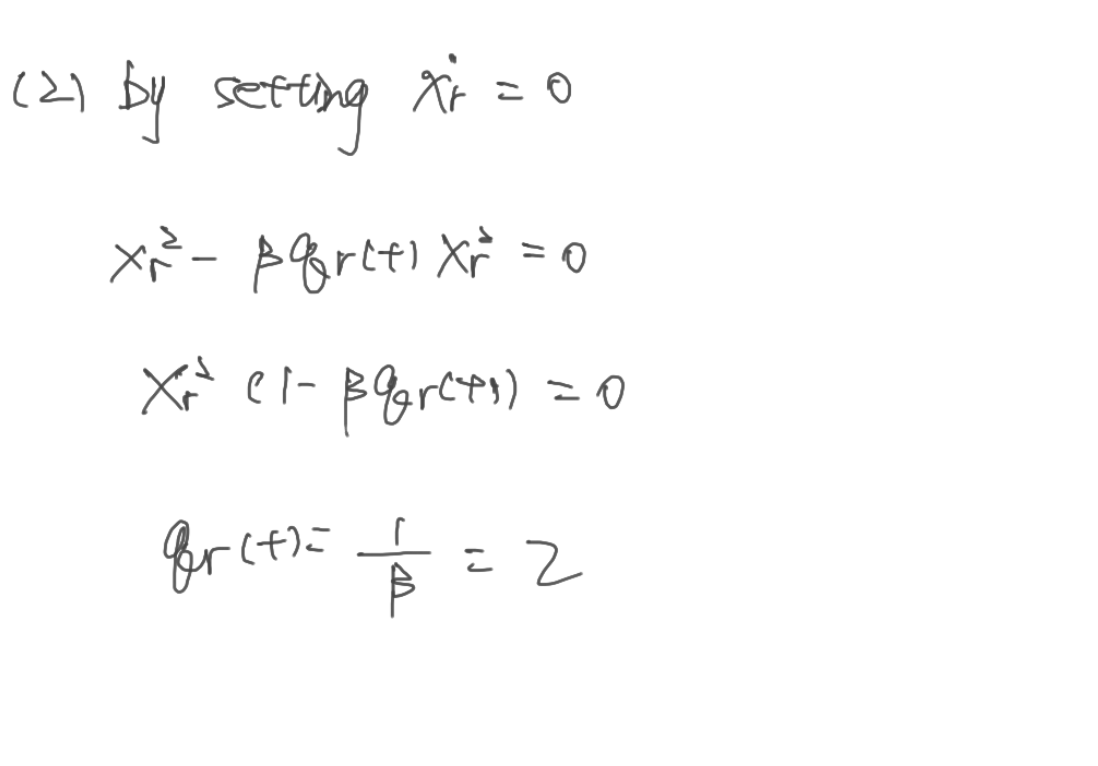 (2) by setting ẋᵣ = 0
xᵣ² - βqᵣ(t) xᵣ² = 0
xᵣ² (1 - βqᵣ(t)) = 0
qᵣ(t) = 1/β = 2